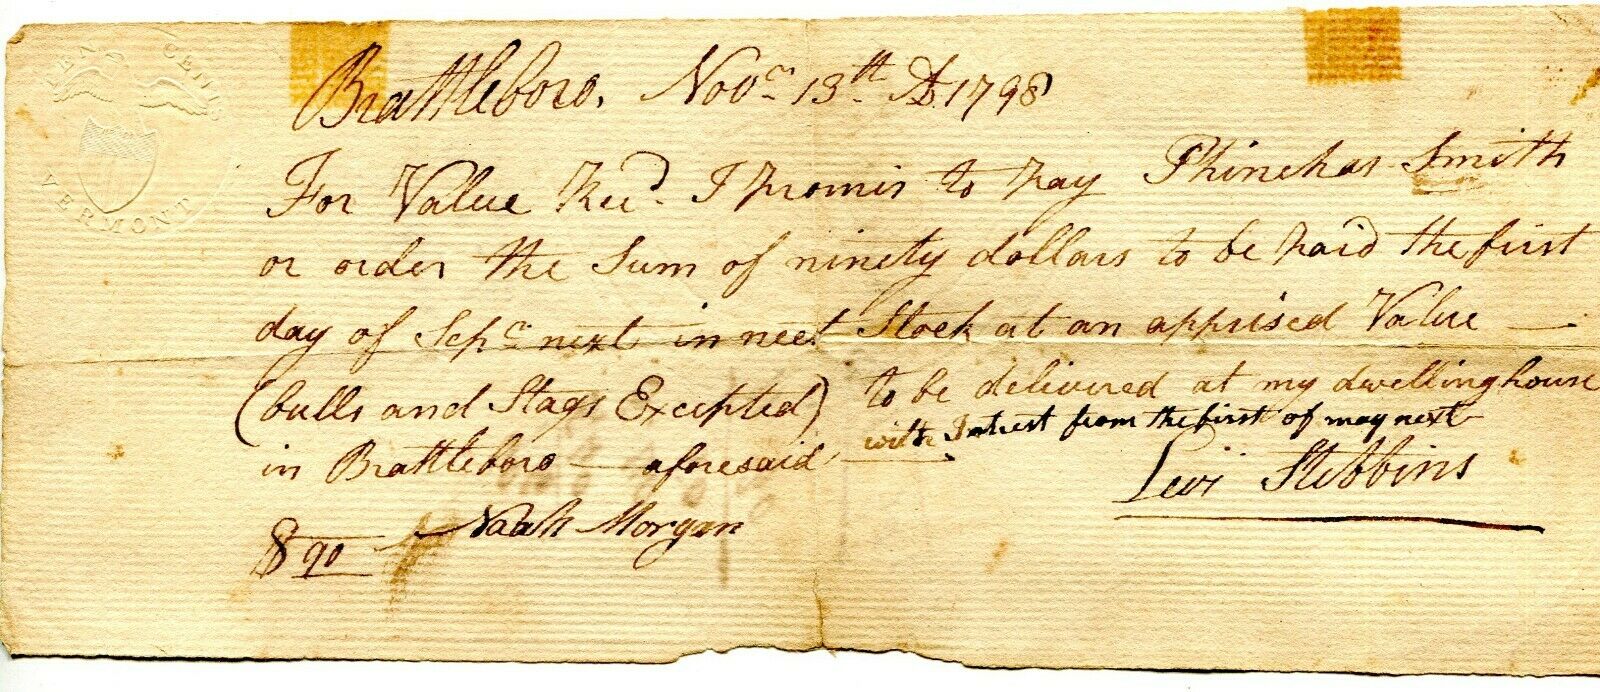 CENTS
VERMONT
Brattleboro, Novr 13th AD 1798
For Value Recd. I promis to pay Phinehas Smith
or order the Sum of ninety dollars to be paid the first
day of Sepr next in neet Stock at an apprised Value —
(bulls and Stags Excepted) to be delivered at my dwelling house
with Intrest from the first of may next
in Brattleboro — aforesaid
Levi Stebbins
Noah Morgan
$90